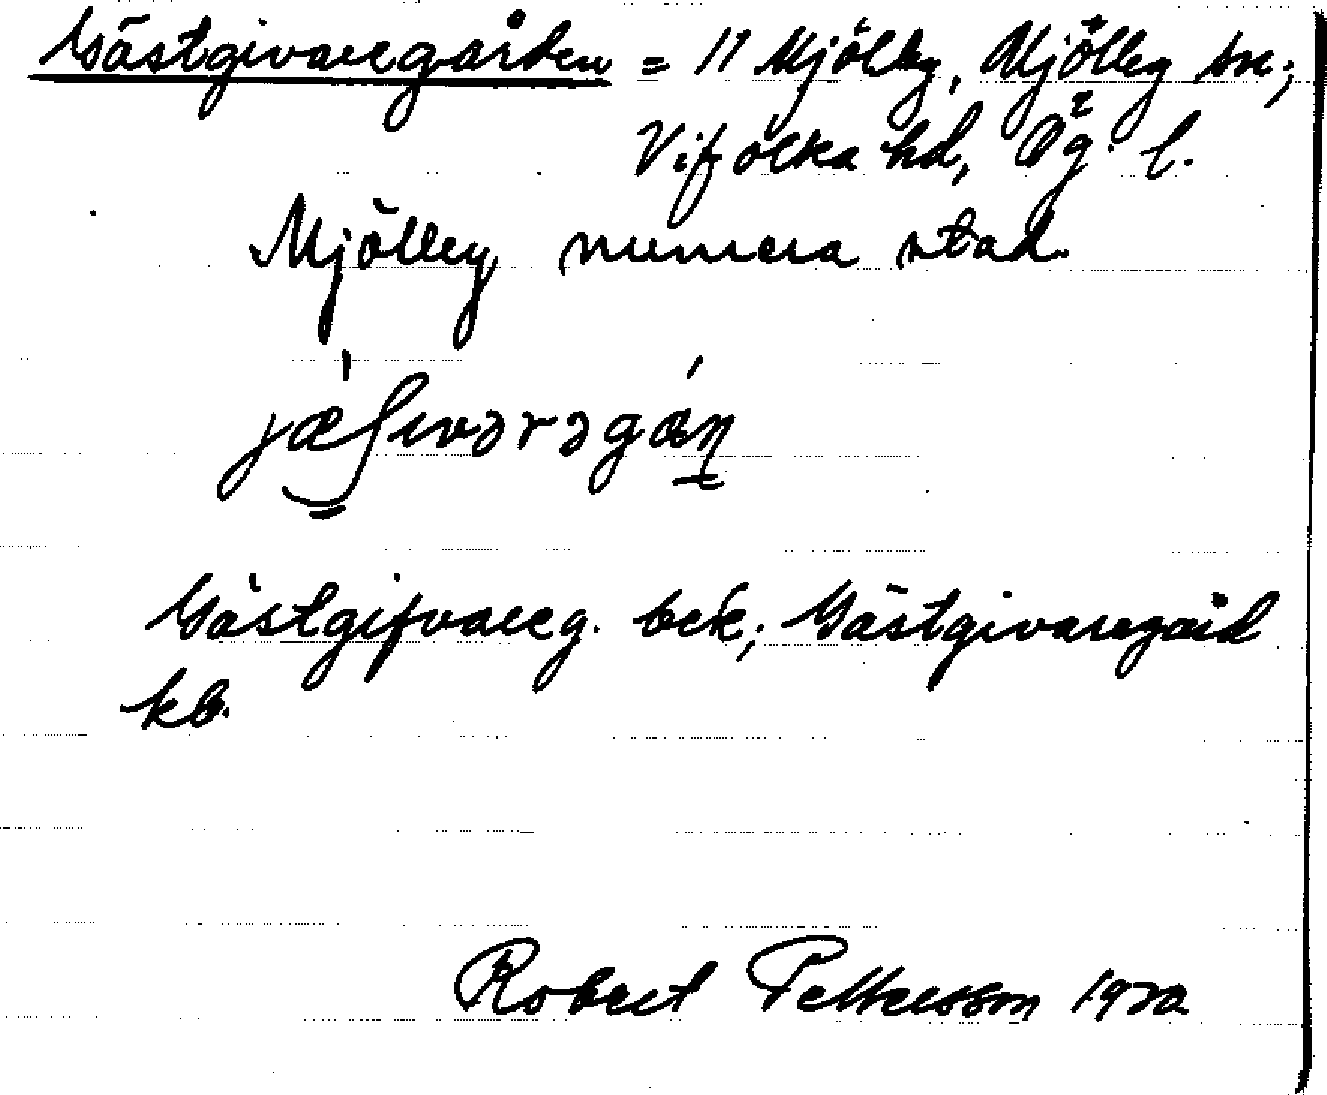 Gästgivaregården = 11 Mjölby, Mjölby sn;
Vifolka hd, Ög. l.
Mjölby numera stad.
Gästgifvareg. bek; Gästgivaregård
kb.
Robert Pettersson